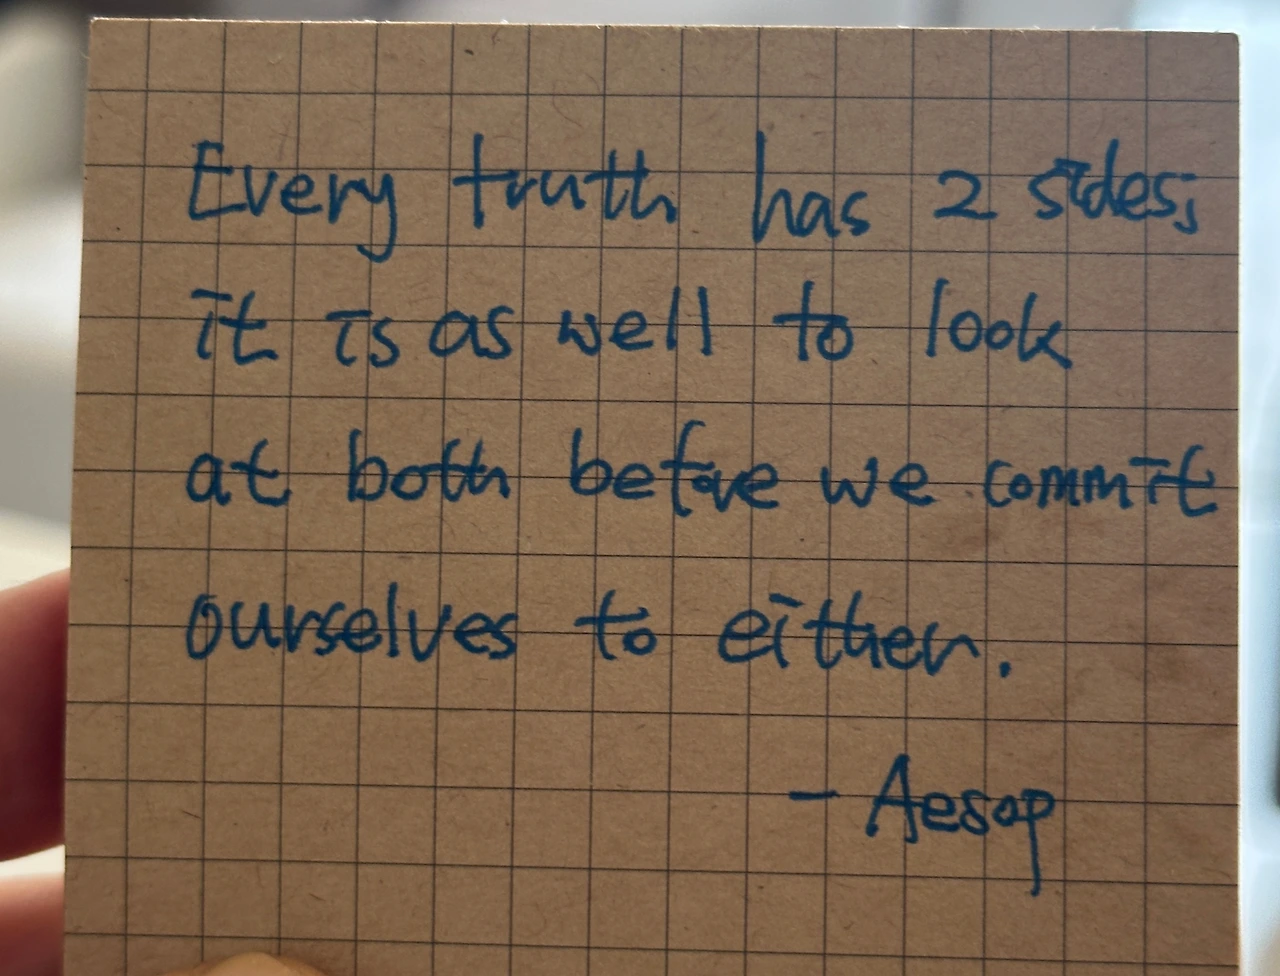 Every truth has 2 sides;
it is as well to look
at both before we commit
ourselves to either.
- Aesop